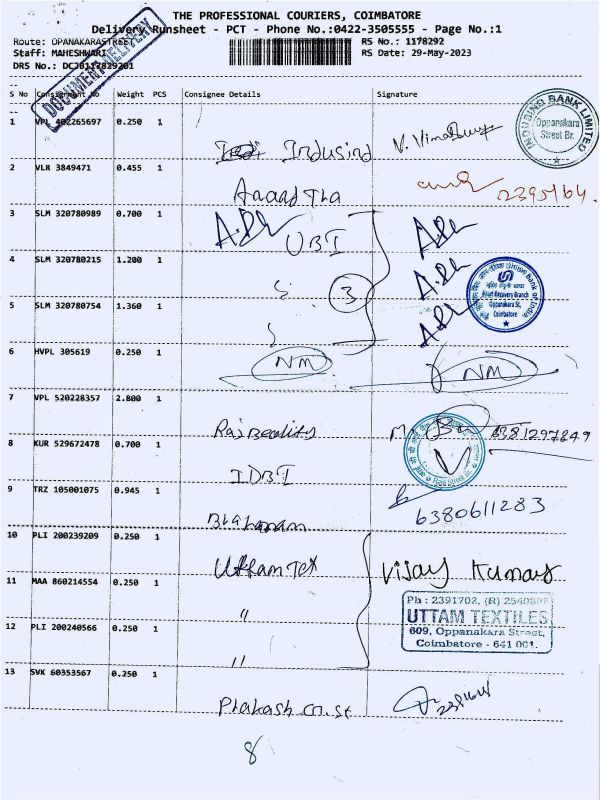 THE PROFESSIONAL COURIERS, COIMBATORE
Delivery Runsheet - PCT - Phone No.:0422-3505555 - Page No.:1
Route: OPANAKARASTREET
RS No.: 1178292
Staff: MAHESHWARI
RS Date: 29-May-2023
DRS No.: DCJB117829201
DOCUMENT DELIVERY
S No Consignment No Weight PCS Consignee Details Signature
1 VPL 402265697 0.250 1
Indusind
INDUSIND BANK LIMITED
Oppanakara
Street Br.
2 VLR 3849471 0.455 1
2395164.
3 SLM 320780989 0.700 1
UBI
4 SLM 320780215 1.200 1
3
Union Bank of India
Asset Recovery Branch
Oppanakara St,
Coimbatore
5 SLM 320780754 1.360 1
6 HVPL 305619 0.250 1
NM NM
7 VPL 520228357 2.800 1
8 KUR 529672478 0.700 1
IDBI
9 TRZ 105001075 0.945 1
6380611283
10 PLI 200239209 0.250 1
Uttam Tex Vijay Kumar
11 MAA 860214554 0.250 1
"
Ph : 2391702, (R)
UTTAM TEXTILES
609, Oppanakara Street,
Coimbatore - 641 001.
12 PLI 200240566 0.250 1
"
13 SVK 60353567 0.250 1
Prakash
8